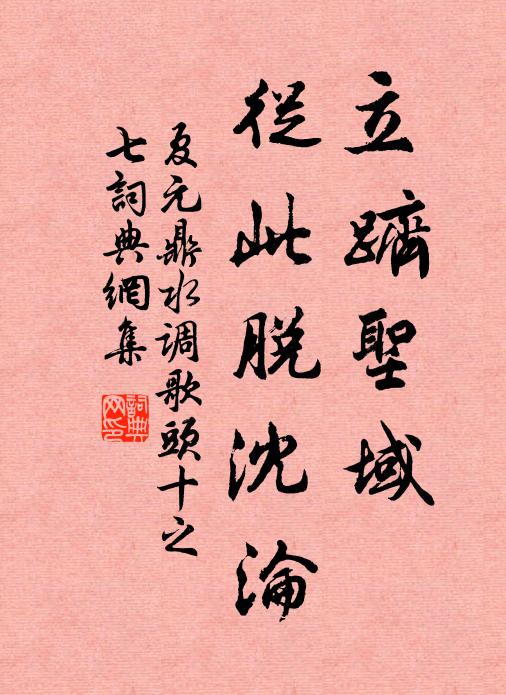 立躋聖域
從此脫沈淪
夏元鼎水调歌頭十之
七詞典網集
詞典
网印